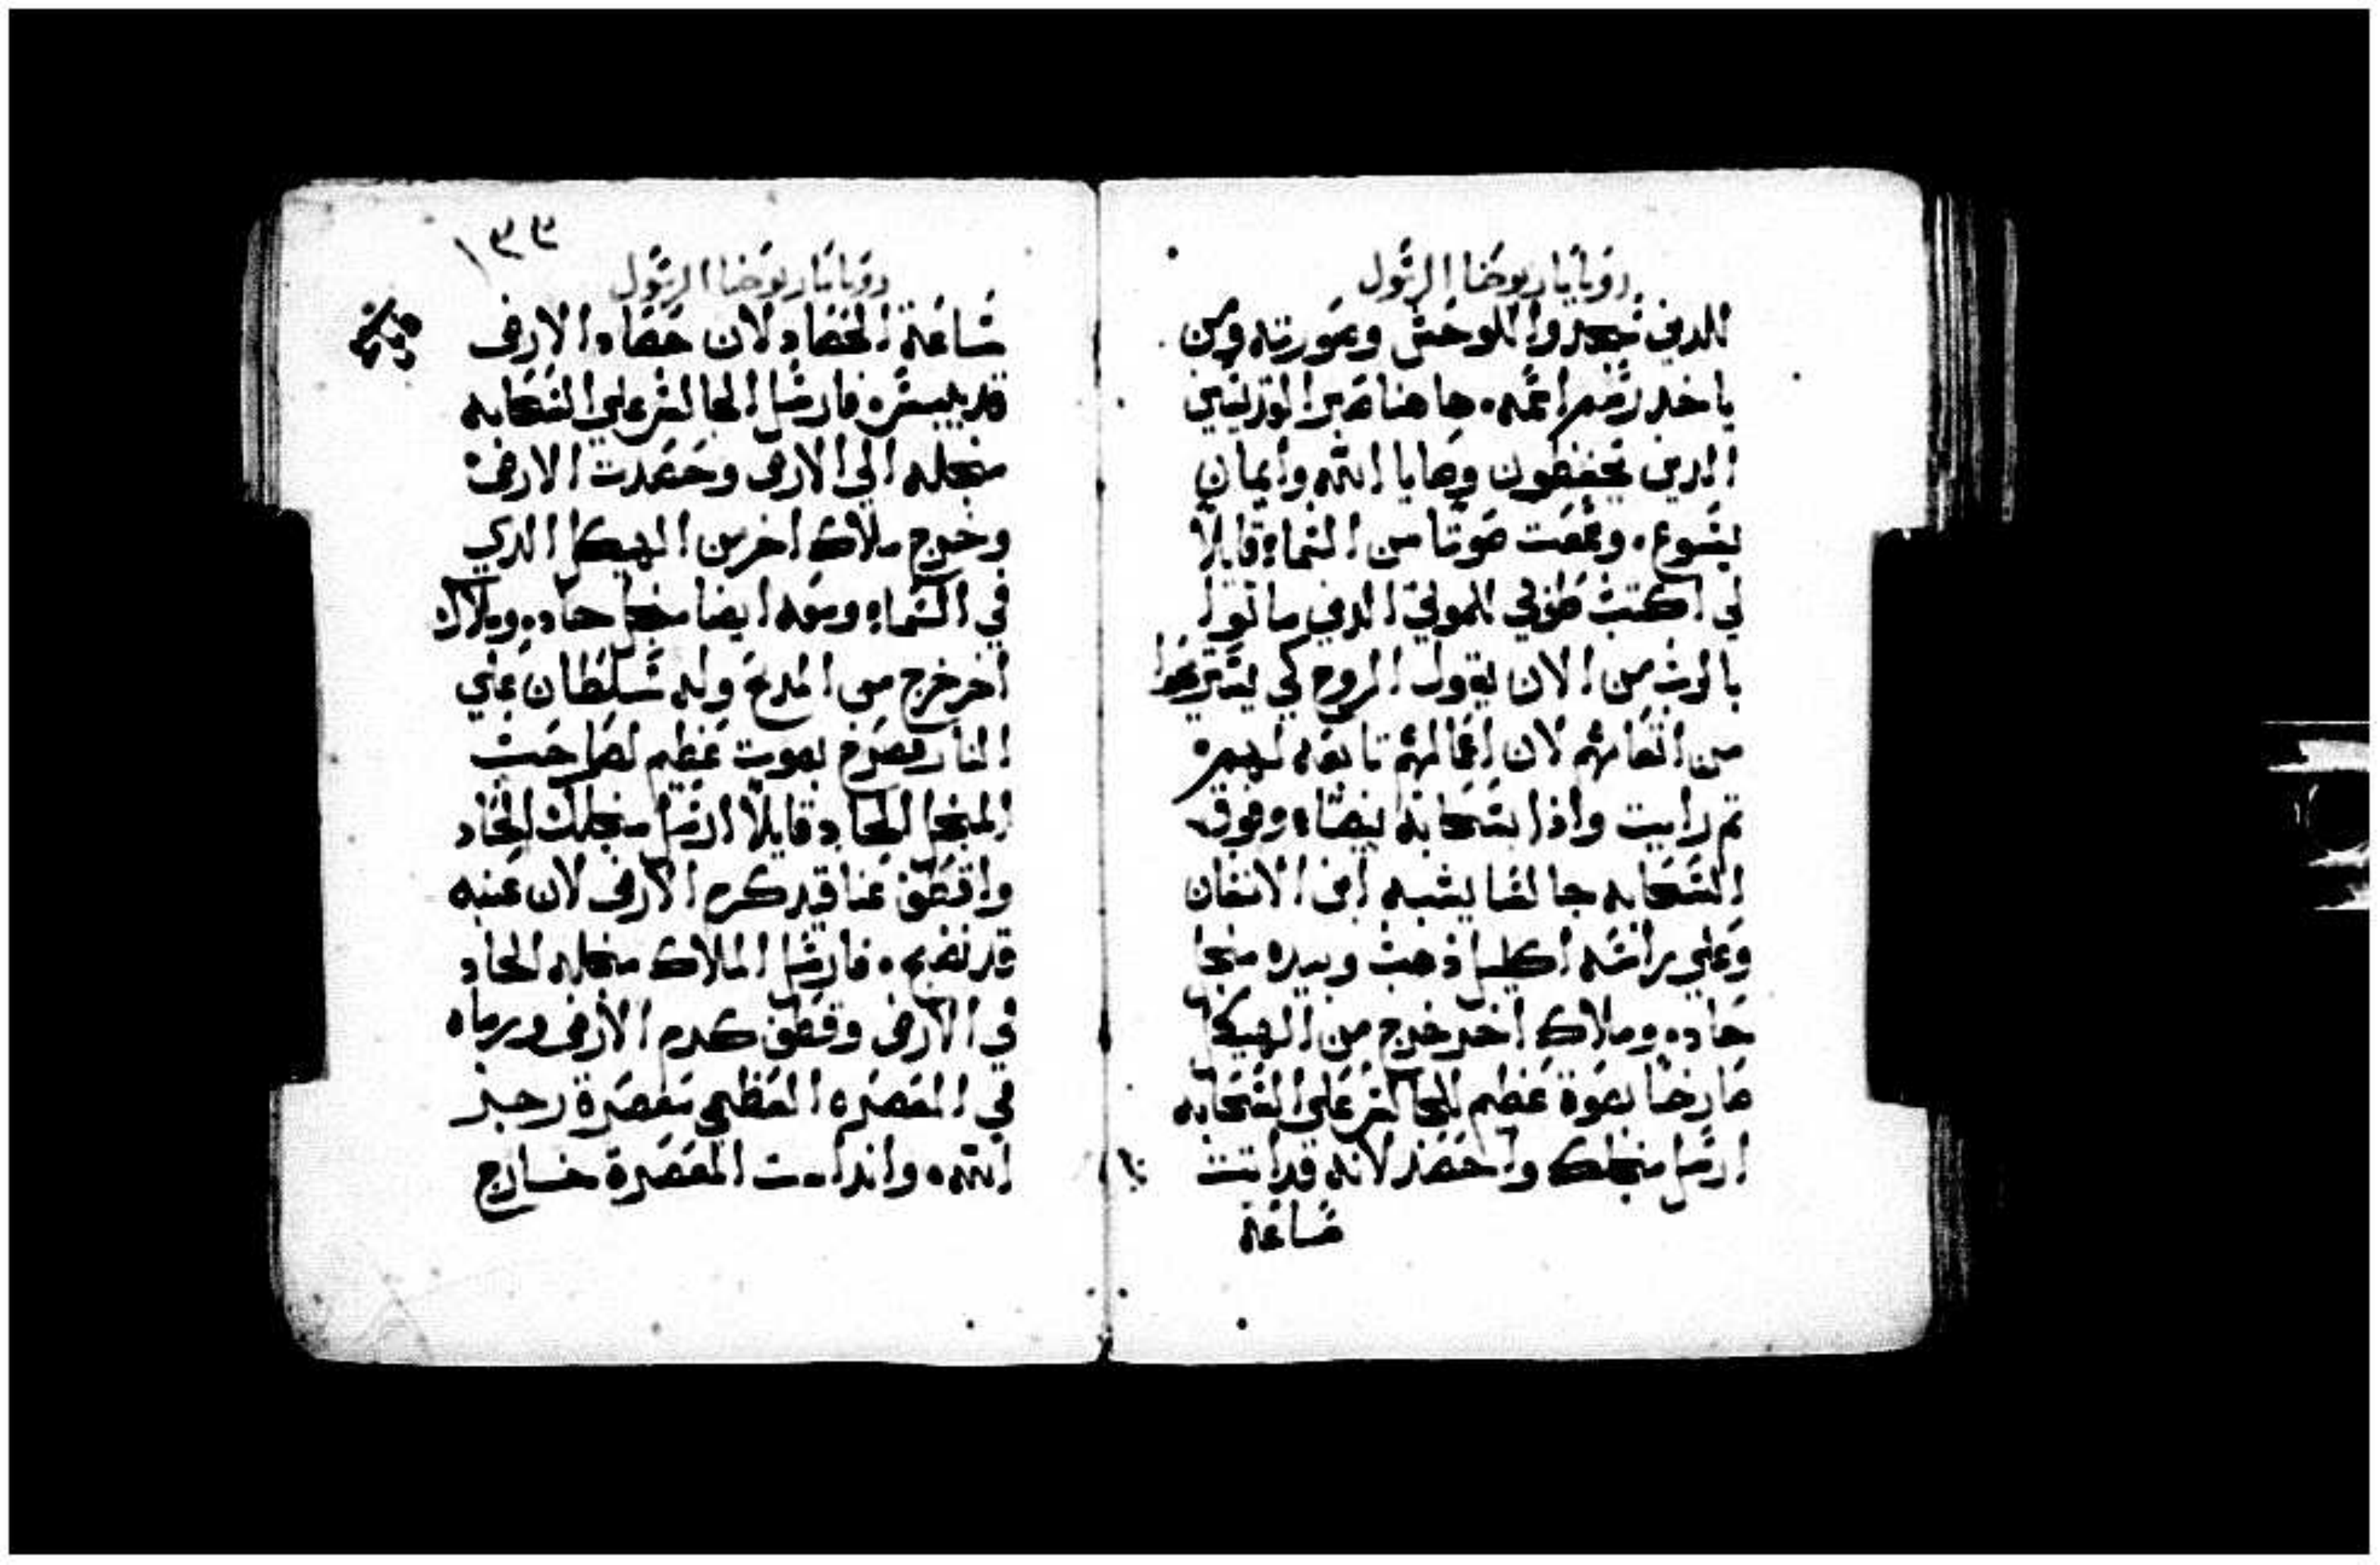 رويا مار يوحنا الرسول
للدين سجدوا للوحش وصورته ومن
ياخد رسم اسمه. هاهنا صبر القديسين
الدين يحفظون وصايا الله وايمان
يسوع. وسمعت صوتا من السماء قايلا
لي اكتب طوبي للموتي الدين ماتوا
بالرب من الان يقول الروح كي يستريحوا
من اتعابهم لان اعمالهم تابعه لهم.
تم رايت واذا بسحابة بيضاء وفوق
السحابه جالسا يشبه ابن الانسان
وعلي راسه اكليل ذهب وبيده منجل
حاده وملاك اخر خرج من الهيكل
صارخا بصوة عظيم للجالس علي السحابه
ارسل منجلك واحصد لانه قد اتت
ساعة
١٣٣
رويا مار يوحنا الرسول
ساعة الحصاد لان حصاد الارض
قد يبس. فارسل الجالس علي السحابه
منجله الي الارض وحصدت الارض.
وخرج ملاك اخر من الهيكل الدي
في السماء ومعه ايضا منجل حاده. وملاك
اخر خرج من المدبح وله سلطان علي
النار فصرخ بصوت عظيم لصاحب
المنجل الحاد قايلا ارسل منجلك الحاد
واقطف عناقيد كرم الارض لان عنبه
قد نضج. فارسل الملاك منجله الحاد
في الارض وقطف كرم الارض ورماه
في المعصره العظمي معصرة رجز
الله. وانداست المعصرة خارج